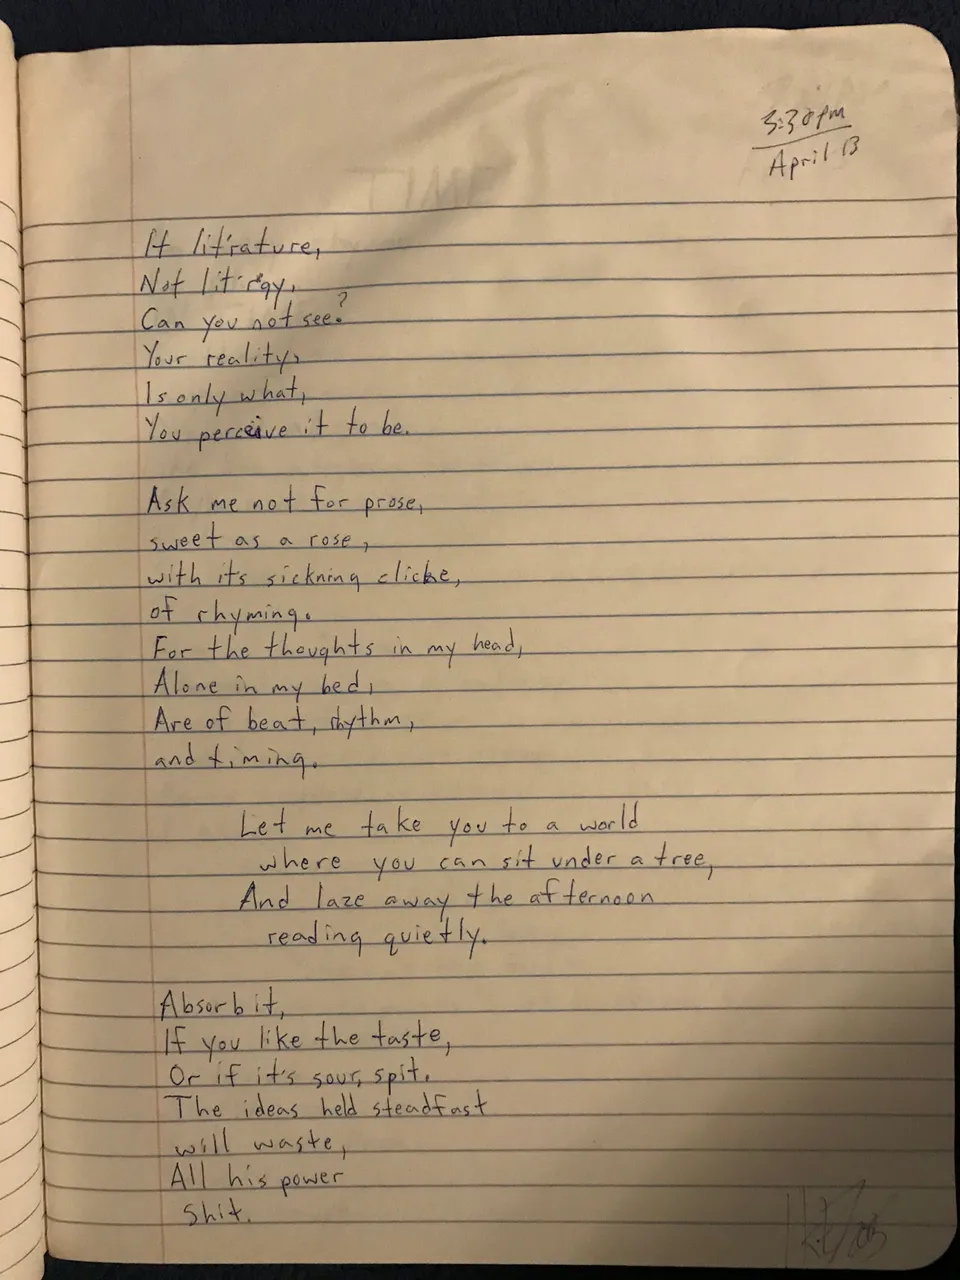 3:30pm
April 13
It lit'rature,
Not lit'rgy,
Can you not see?
Your reality,
Is only what,
You perceive it to be.
Ask me not for prose,
sweet as a rose,
with it's sickning cliche,
of rhyming.
For the thoughts in my head,
Alone in my bed,
Are of beat, rhythm,
and timing.
Let me take you to a world
where you can sit under a tree,
And laze away the afternoon
reading quietly.
Absorb it,
If you like the taste,
Or if it's sour, spit.
The ideas held steadfast
will waste,
All his power
shit.